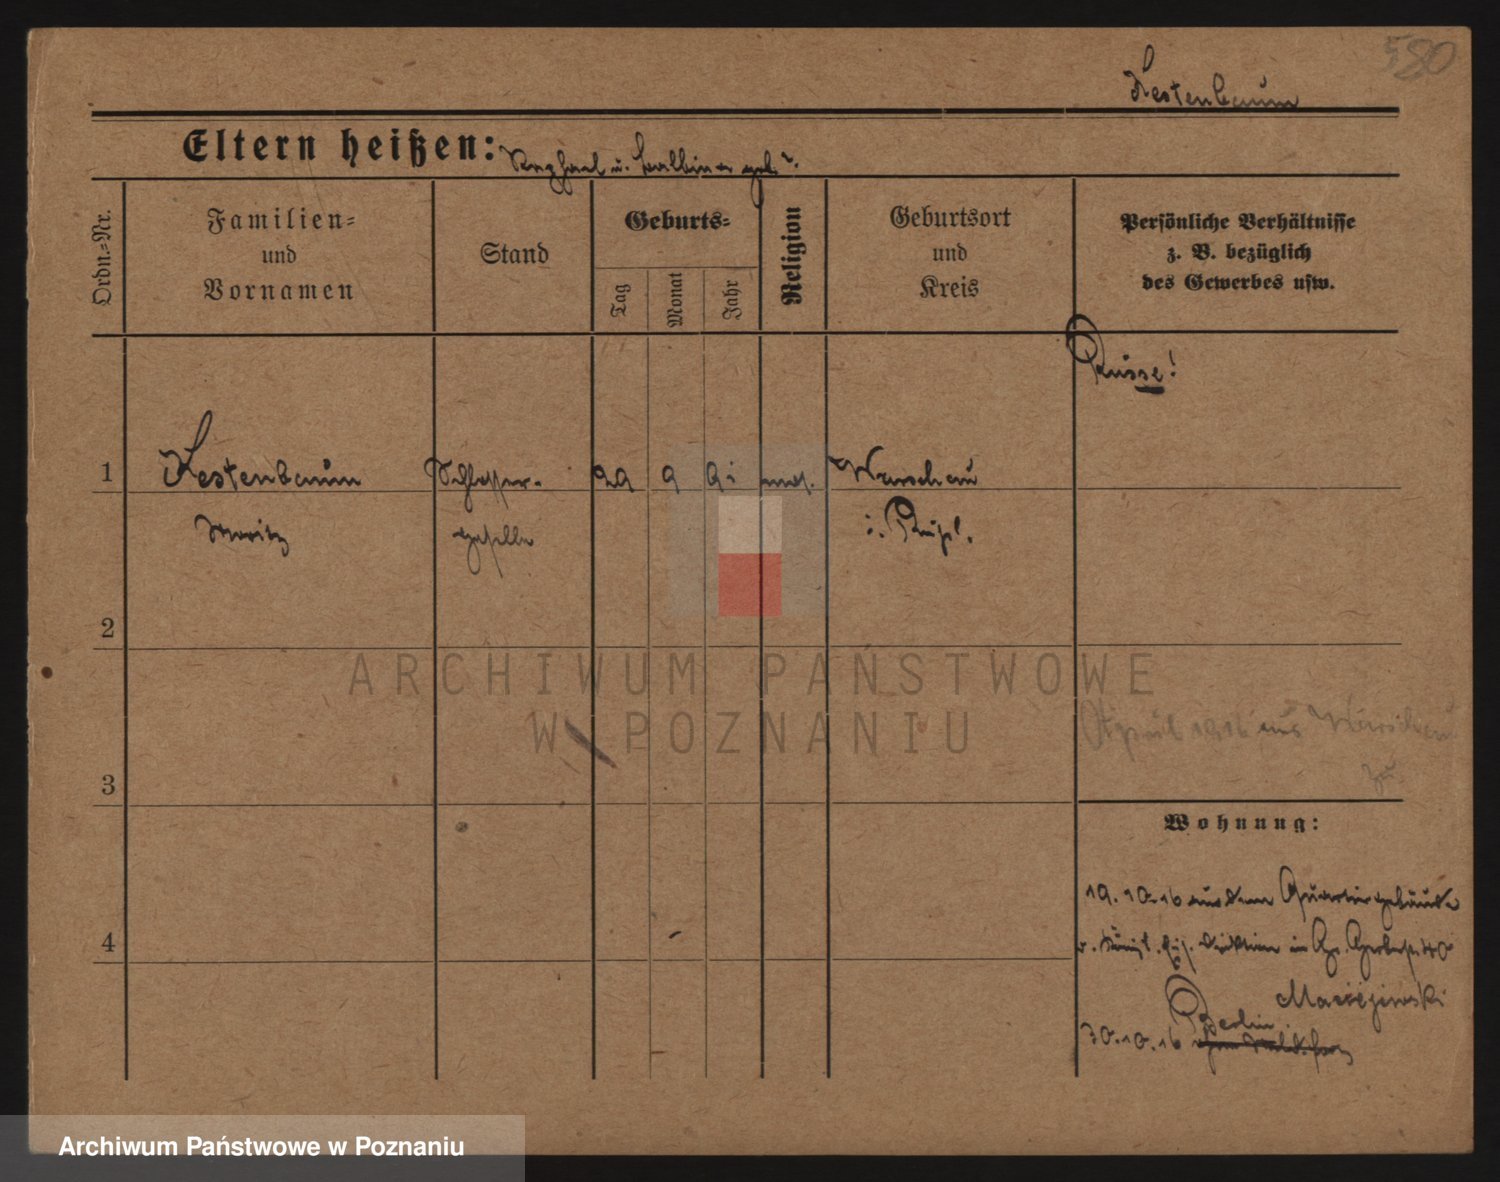 580
Kestenbaum
Eltern heißen: Raphael u. Balbina geb. ?
Ordn.-Nr.
Familien-
und
Vornamen
Stand
Geburts-
Tag
Monat
Jahr
Religion
Geburtsort
und
Kreis
Persönliche Verhältnisse
z. B. bezüglich
des Gewerbes usw.
Russe!
1 Kestenbaum Schlosser- 29 9 91 mos. Warschau
Moritz geselle i. Rußl.
2
ARCHIWUM PAŃSTWOWE
W POZNANIU
April 1916 aus Warschau
zu
3
Wohnung:
19.10.16 aus dem Quartiergebäude
4
v. Königl. in 40
Maciejewski
Berlin
30.10.16
Archiwum Państwowe w Poznaniu